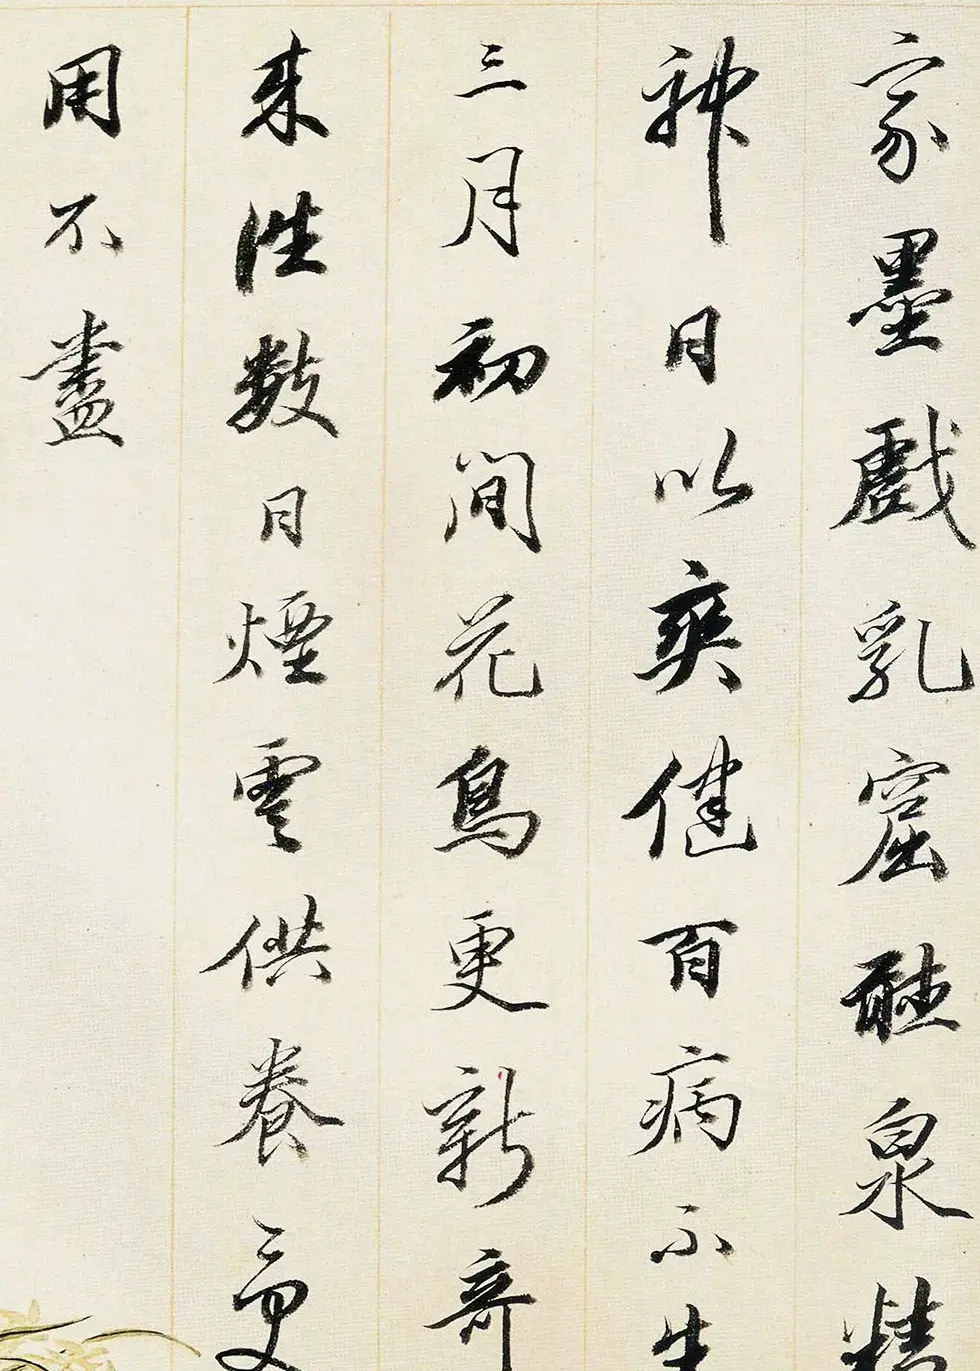 家墨戲乳窟泉精
神日以爽健百病不生
三月初間花鳥更新奇
來往數日煙雲供養受
用不盡